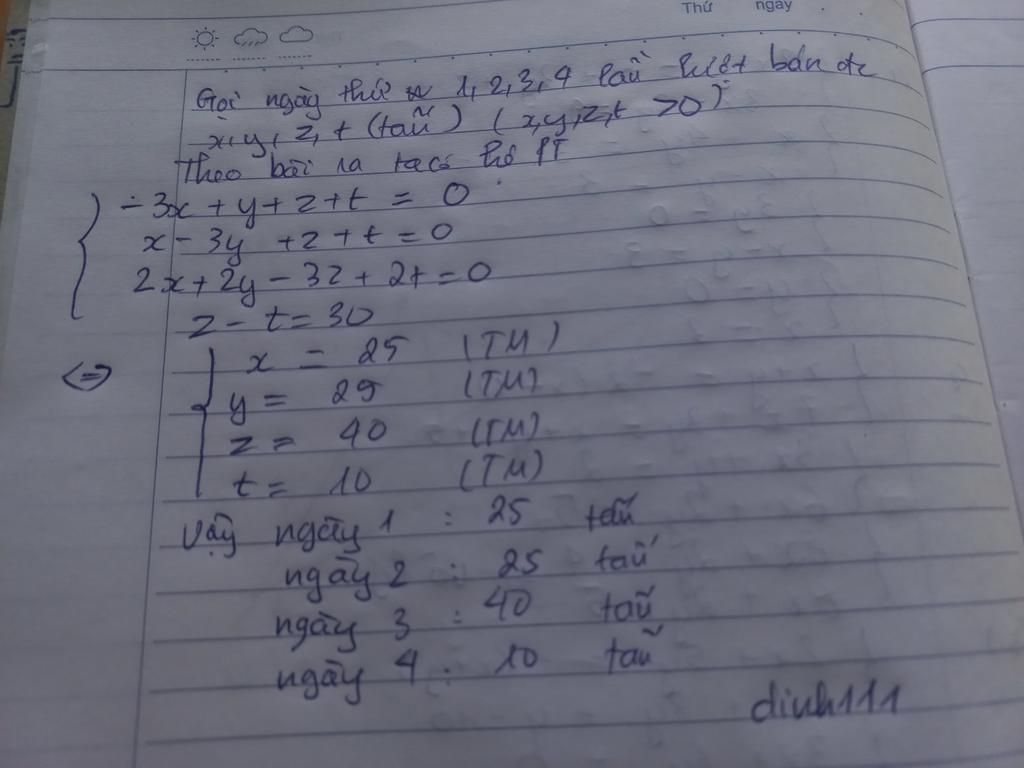 Thứ ngày
Gọi ngày thứ 1, 2, 3, 4 lần lượt bán đc
x, y, z, t (tấn) (x,y,z,t >0)
Theo bài ra ta có hệ PT
-3x + y + z + t = 0
x - 3y + z + t = 0
2x + 2y - 3z + 2t = 0
z - t = 30
<=> x = 25 (TM)
y = 25 (TM)
z = 40 (TM)
t = 10 (TM)
Vậy ngày 1 : 25 tấn
ngày 2 : 25 tấn
ngày 3 : 40 tấn
ngày 4 : 10 tấn
dinh111